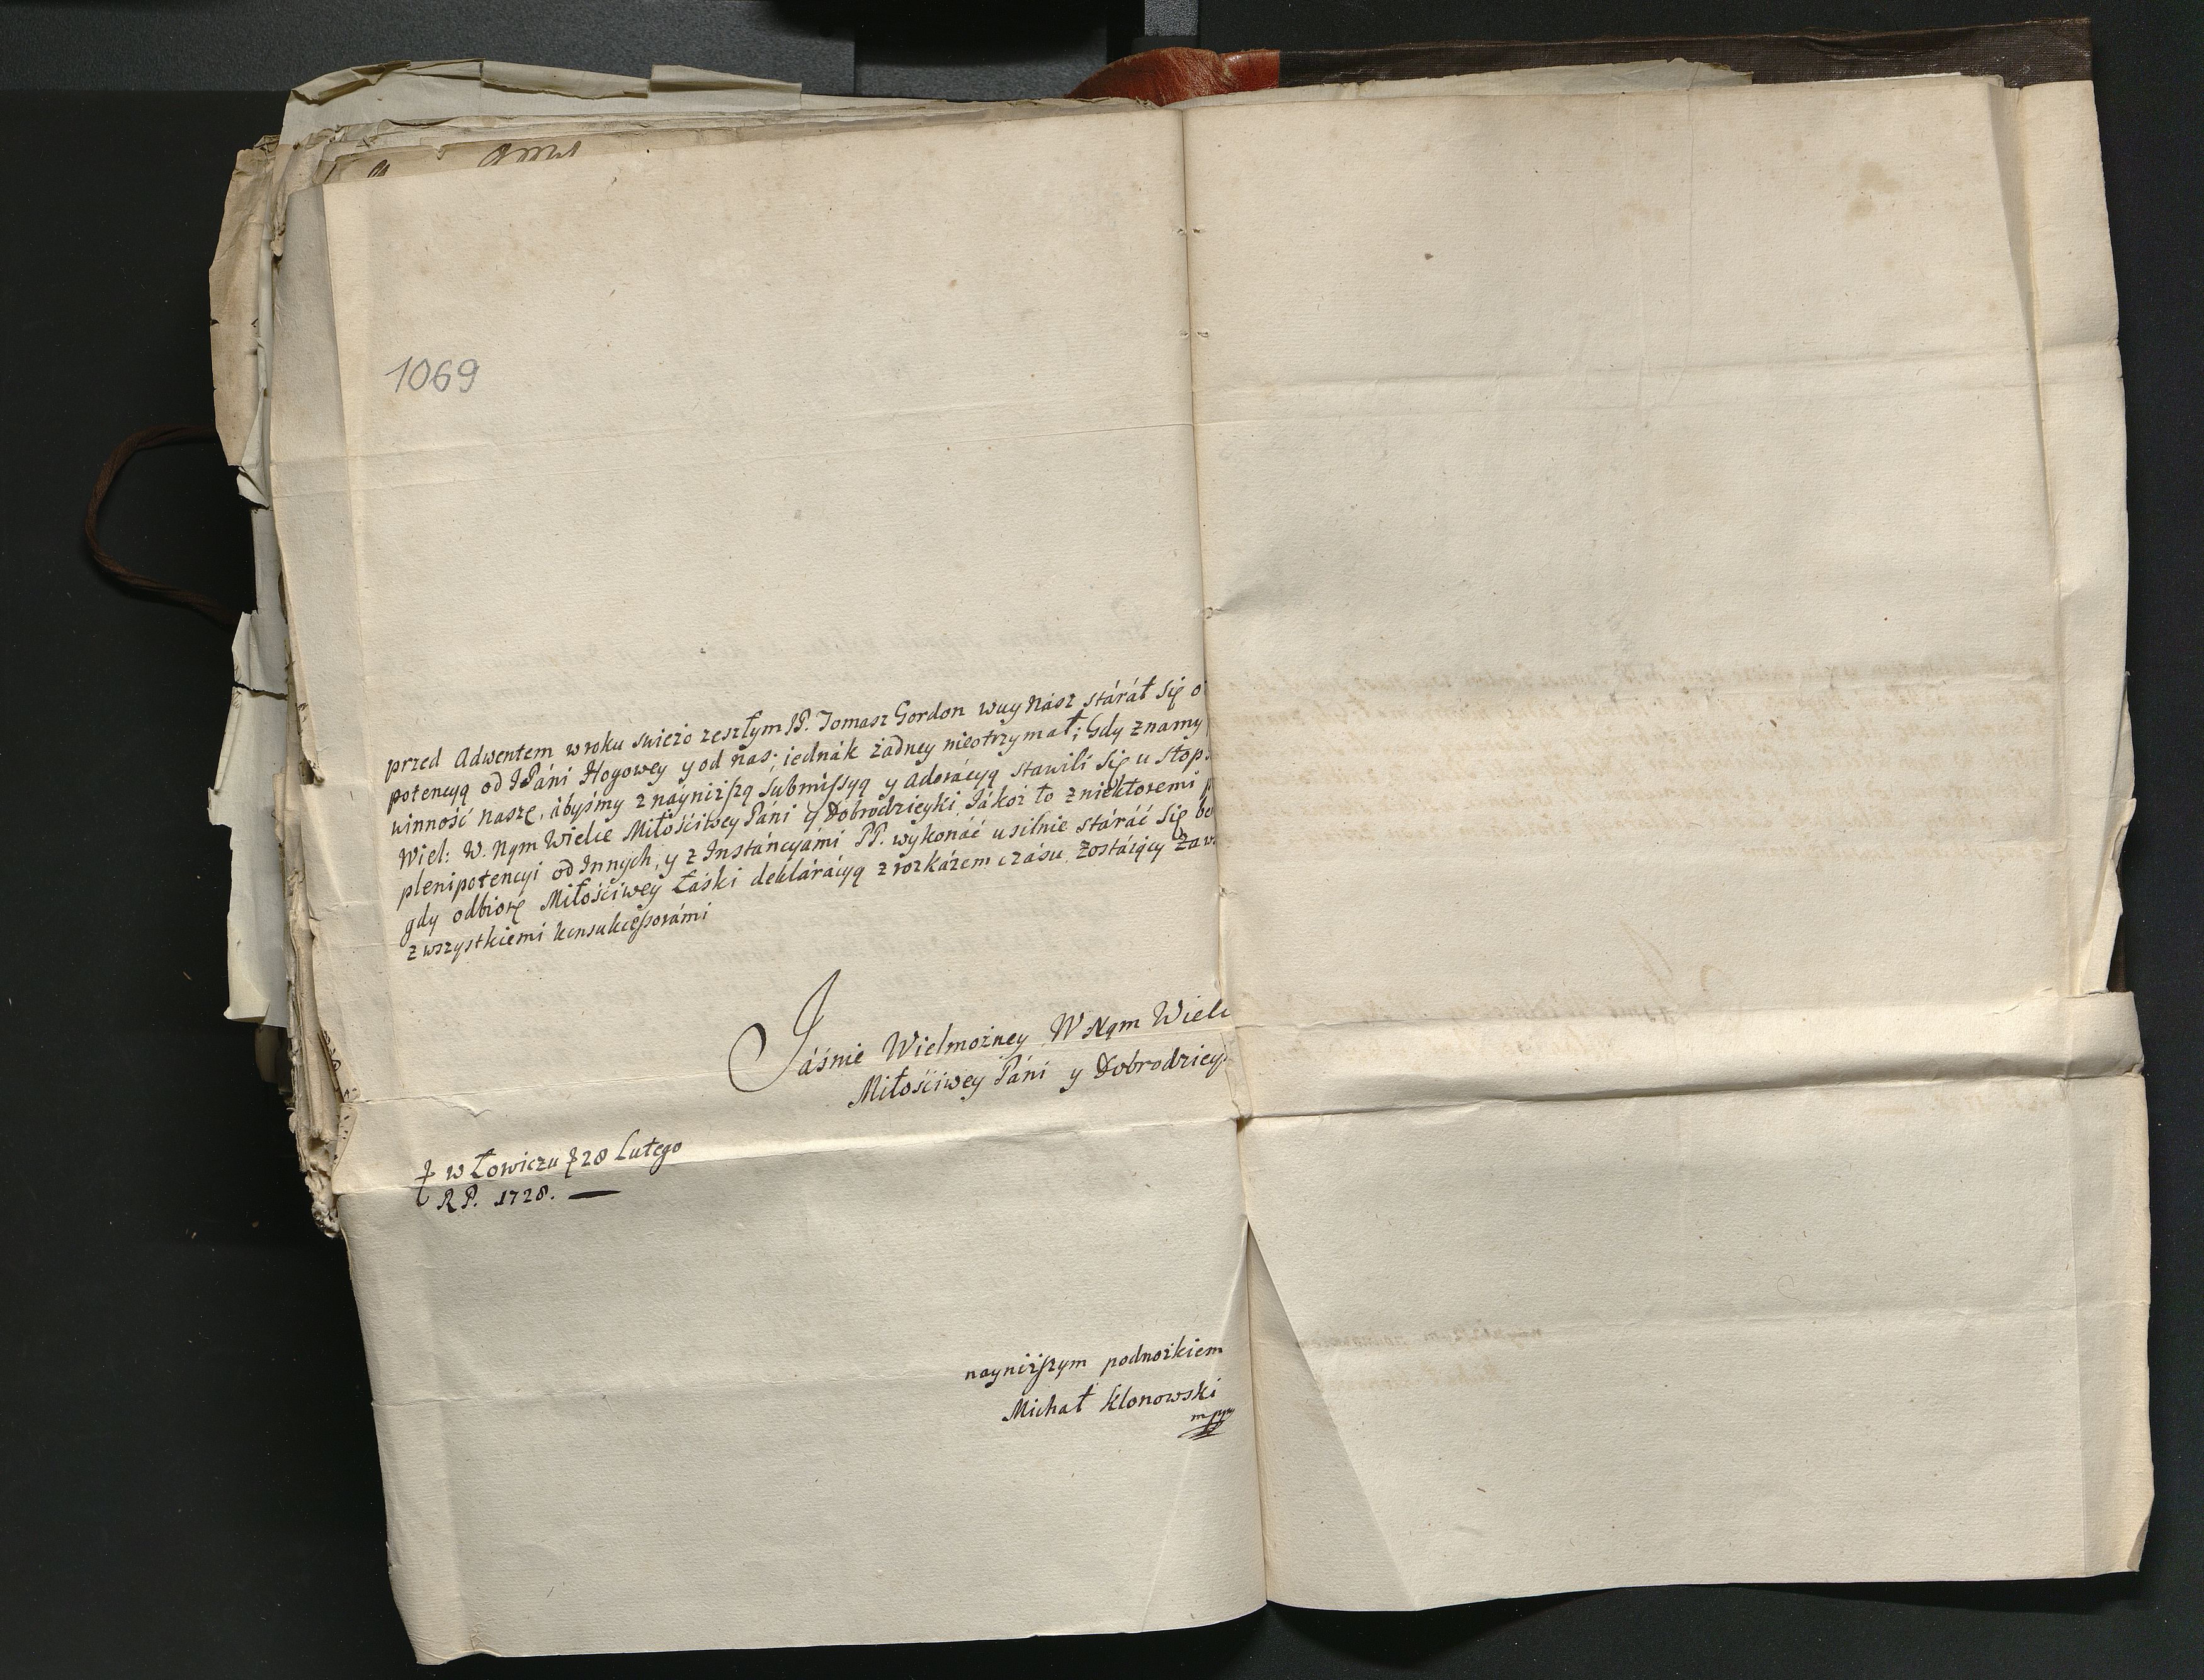 1069
przed Adwentem w roku swieżo zeszłym JP. Tomasz Gordon wuy Nász stáráł się o
potencyą od JPáni Hogowey y od nas; iednák żadney nieotrzymał; Gdy znamy
winność naszę, ábyśmy z náyniższą Submissyą y Adorácyą stawili się u stop
Wiel: W. Nąm Wielce Miłościwey Páni y Dobrodzieyki, Jákoż to z niektoremi
plenipotencyi od Innych, y z Instáncyámi PP. wykonáć usilnie stáráć się
gdy odbiorę Miłościwey Łáski deklárácyą z rozkázem czásu, zostáiący
z wszystkiemi konsukcessorámi
Jáśnie Wielmożney W Nąm Wiel
Miłościwey Páni y Dobrodziey
w Łowiczu 28 Lutego
R P. 1728.
nayniższym podnożkiem
Michał Klonowski
mppr